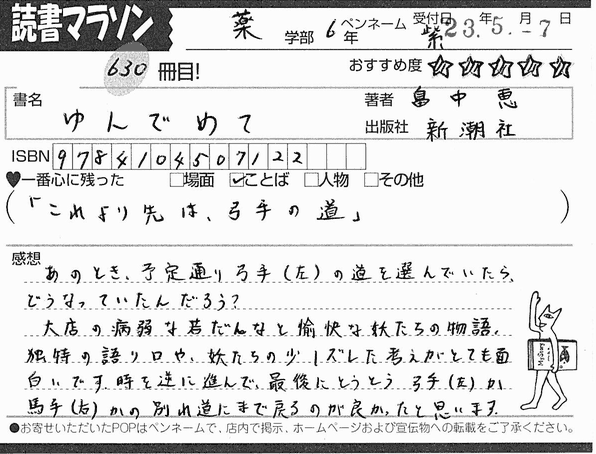 読書マラソン
薬 学部 6年 ペンネーム 紫 受付日 23年 5.月 -7日
630 冊目!
おすすめ度 ☆☆☆☆☆
書名 ゆんでめて
著者 畠中恵
出版社 新潮社
ISBN 9784104507122
♥一番心に残った □場面 ☑ことば □人物 □その他
(「これより先は、弓手の道」)
感想
あのとき、予定通り弓手(左)の道を選んでいたら、
どうなっていたんだろう?
大店の病弱な若だんなと愉快な妖たちの物語。
独特の語り口や、妖たちの少しズレた考えがとても面
白いです。時を逆に進んで、最後にとうとう弓手(左)か
馬手(右)かの別れ道にまで戻るのが良かったと思います。
●お寄せいただいたPOPはペンネームで、店内で掲示、ホームページおよび宣伝物への転載をご了承ください。